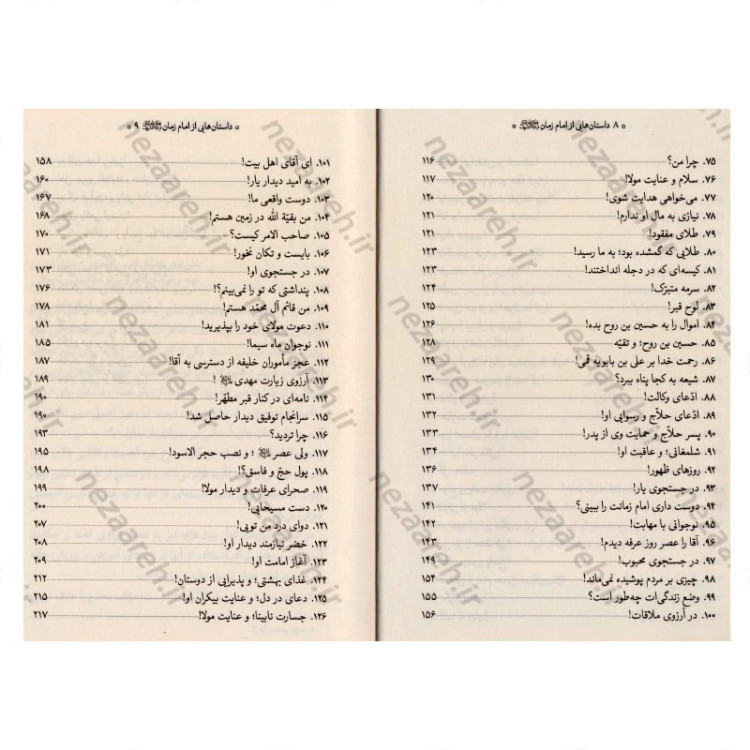 * ۸ داستان‌هایی از امام زمان ﷺ *
۷۵. چرا من؟ ۱۱۶
۷۶. سلام و عنایت مولا! ۱۱۷
۷۷. می‌خواهی هدایت شوی! ۱۲۰
۷۸. نیازی به مال او ندارم! ۱۲۱
۷۹. طلای مفقود! ۱۲۱
۸۰. طلایی که گمشده بود؛ به ما رسید! ۱۲۳
۸۱. کیسه‌ای که در دجله انداختند! ۱۲۳
۸۲. سرمه متبرّک! ۱۲۴
۸۳. لوح قبر! ۱۲۵
۸۴. اموال را به حسین بن روح بده! ۱۲۶
۸۵. حسین بن روح؛ و تقیّه ۱۲۸
۸۶. رحمت خدا بر علی بن بابویه قمی! ۱۲۹
۸۷. شیعه به کجا پناه ببرد؟ ۱۳۰
۸۸. ادّعای وکالت! ۱۳۱
۸۹. ادّعای حلاّج و رسوایی او! ۱۳۲
۹۰. پسر حلاّج و حمایت وی از پدر! ۱۳۳
۹۱. شلمغانی؛ و عاقبت او! ۱۳۴
۹۲. روزهای ظهور! ۱۳۶
۹۳. در جستجوی یار! ۱۳۷
۹۴. دوست داری امام زمانت را ببینی؟ ۱۴۱
۹۵. نوجوانی با مهابت! ۱۴۲
۹۶. آقا را عصر روز عرفه دیدم! ۱۴۳
۹۷. در جستجوی محبوب! ۱۴۹
۹۸. چیزی بر مردم پوشیده نمی‌ماند! ۱۵۴
۹۹. وضع زندگی‌ات چه‌طور است؟ ۱۵۵
۱۰۰. در آرزوی ملاقات! ۱۵۶
* داستان‌هایی از امام زمان ۹ *
۱۰۱. ای آقای اهل بیت! ۱۵۸
۱۰۲. به امید دیدار یار! ۱۶۰
۱۰۳. دوست واقعی ما! ۱۶۷
۱۰۴. من بقیّة الله در زمین هستم! ۱۶۸
۱۰۵. صاحب الامر کیست؟ ۱۷۰
۱۰۶. بایست و تکان نخور! ۱۷۱
۱۰۷. در جستجوی او! ۱۷۳
۱۰۸. پنداشتی که تو را نمی‌بینم؟! ۱۷۶
۱۰۹. من قائم آل محمّد هستم! ۱۷۸
۱۱۰. دعوت مولای خود را بپذیرید! ۱۸۱
۱۱۱. نوجوان ماه سیما! ۱۸۵
۱۱۲. عجز مأموران خلیفه از دسترسی به آقا! ۱۸۷
۱۱۳. آرزوی زیارت مهدی ! ۱۸۹
۱۱۴. نامه‌ای در کنار قبر مطهّر! ۱۹۰
۱۱۵. سرانجام توفیق دیدار حاصل شد! ۱۹۰
۱۱۶. چرا تردید؟ ۱۹۳
۱۱۷. ولی عصر ؛ و نصب حجر الاسود! ۱۹۵
۱۱۸. پول حجّ و فاسق؟! ۱۹۸
۱۱۹. صحرای عرفات و دیدار مولا! ۱۹۹
۱۲۰. دست مسیحایی! ۲۰۰
۱۲۱. دوای درد من تویی! ۲۰۷
۱۲۲. خضر نیازمند دیدار او! ۲۰۸
۱۲۳. آغاز امامت او! ۲۰۹
۱۲۴. غذای بهشتی؛ و پذیرایی از دوستان! ۲۱۲
۱۲۵. دعای در دل؛ و عنایت بیکران او! ۲۱۵
۱۲۶. جسارت نابینا؛ و عنایت مولا! ۲۱۷
nezaareh.ir
nezaareh.ir
nezaareh.ir
nezaareh.ir
nezaareh.ir
nezaareh.ir